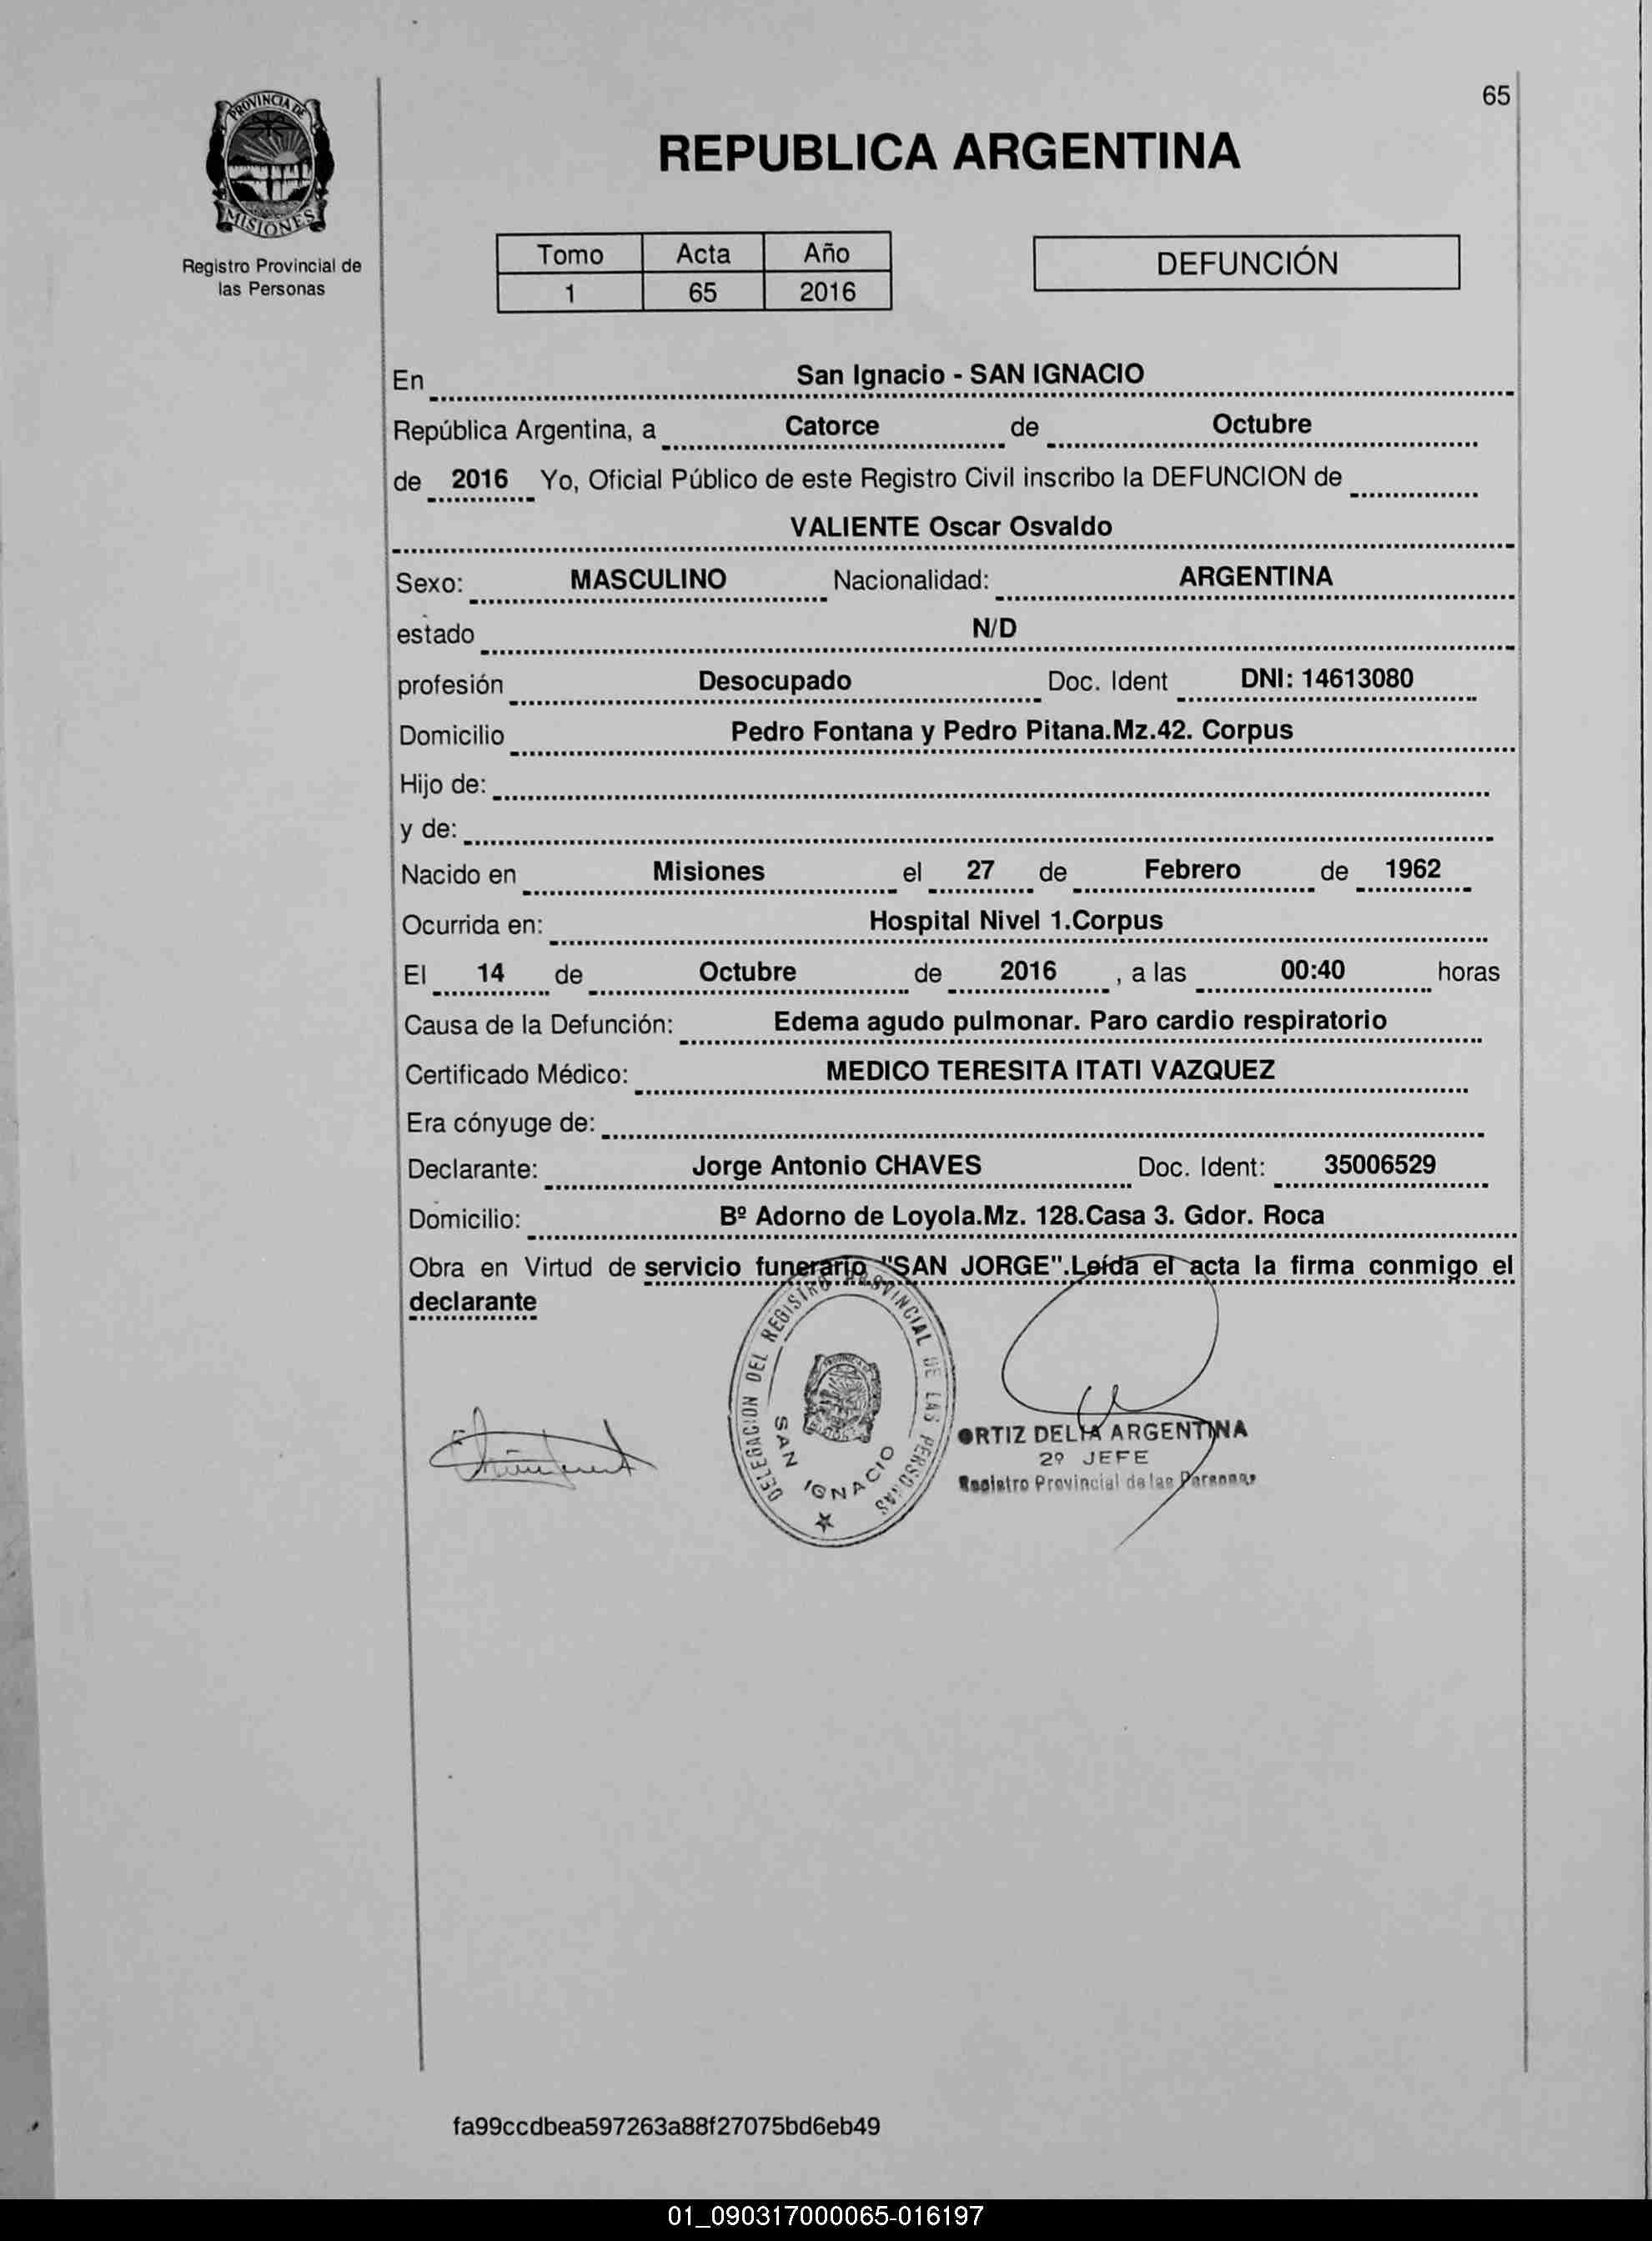 65
PROVINCIA DE
MISIONES
Registro Provincial de
las Personas
REPUBLICA ARGENTINA
Tomo Acta Año
1 65 2016
DEFUNCIÓN
En San Ignacio - SAN IGNACIO
República Argentina, a Catorce de Octubre
de 2016 Yo, Oficial Público de este Registro Civil inscribo la DEFUNCION de
VALIENTE Oscar Osvaldo
Sexo: MASCULINO Nacionalidad: ARGENTINA
estado N/D
profesión Desocupado Doc. Ident DNI: 14613080
Domicilio Pedro Fontana y Pedro Pitana.Mz.42. Corpus
Hijo de:
y de:
Nacido en Misiones el 27 de Febrero de 1962
Ocurrida en: Hospital Nivel 1.Corpus
El 14 de Octubre de 2016 , a las 00:40 horas
Causa de la Defunción: Edema agudo pulmonar. Paro cardio respiratorio
Certificado Médico: MEDICO TERESITA ITATI VAZQUEZ
Era cónyuge de:
Declarante: Jorge Antonio CHAVES Doc. Ident: 35006529
Domicilio: Bº Adorno de Loyola.Mz. 128.Casa 3. Gdor. Roca
Obra en Virtud de servicio funerario "SAN JORGE".Leída el acta la firma conmigo el
declarante
DELEGACION DEL REGISTRO PROVINCIAL DE LAS PERSONAS
SAN IGNACIO
ORTIZ DELIA ARGENTINA
2º JEFE
Registro Provincial de las Personas
fa99ccdbea597263a88f27075bd6eb49
01_090317000065-016197